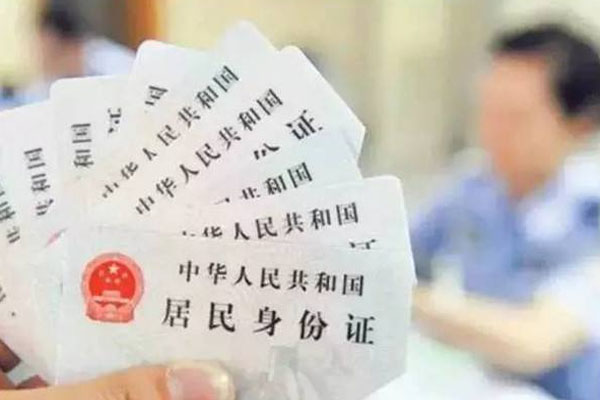 中华人民共和国
中华人民共和国
份证
共和国
和国
中华人民共和国
中华人民共和国
居民身份证